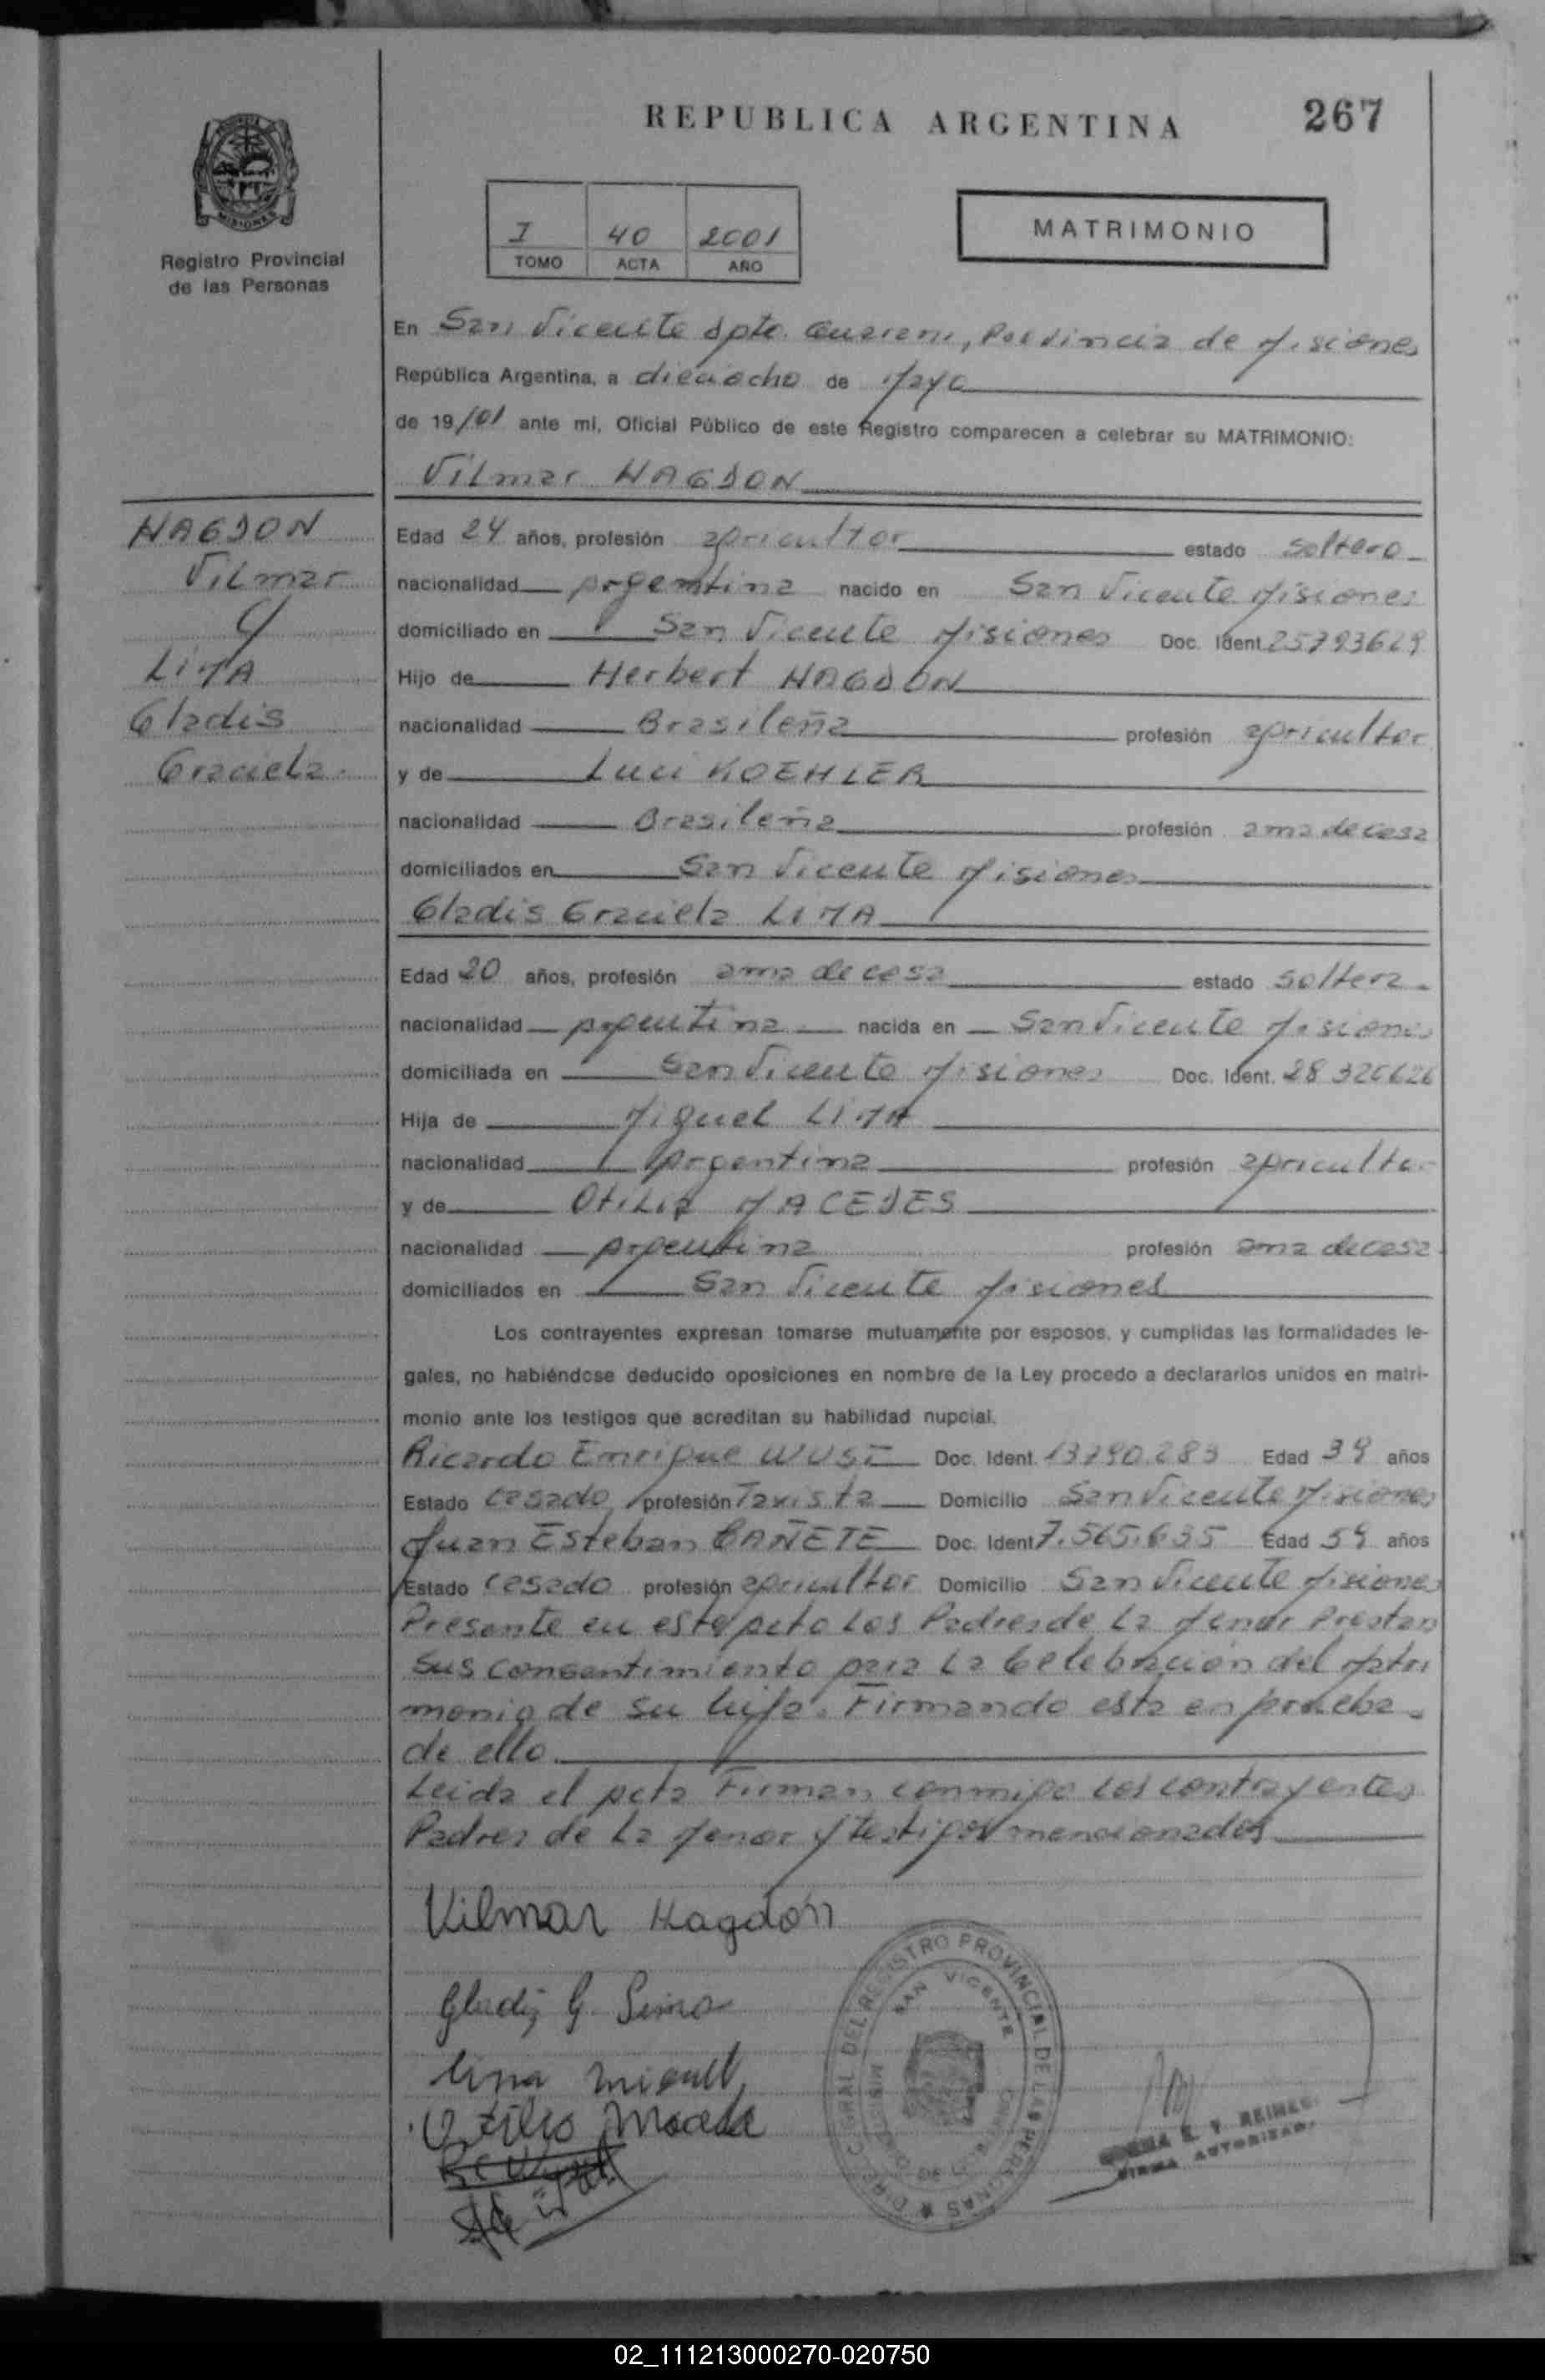 REPUBLICA ARGENTINA
267
MISIONES
Registro Provincial
de las Personas
I 40 2001
TOMO ACTA AÑO
MATRIMONIO
En San Vicente Dpto. Guarani, Provincia de Misiones
República Argentina, a dieciocho de Mayo
de 19/01 ante mi, Oficial Público de este Registro comparecen a celebrar su MATRIMONIO:
Vilmar HAGDON
HAGDON
Vilmar
y
LIMA
Gladis
Graciela.
Edad 24 años, profesión agricultor estado soltero
nacionalidad Argentina nacido en San Vicente Misiones
domiciliado en San Vicente Misiones Doc. Ident. 25793629
Hijo de Herbert HAGDON
nacionalidad Brasileña profesión agricultor
y de Luci KOEHLER
nacionalidad Brasileña profesión ama de casa
domiciliados en San Vicente Misiones
Gladis Graciela LIMA
Edad 20 años, profesión ama de casa estado soltera
nacionalidad Argentina nacida en San Vicente Misiones
domiciliada en San Vicente Misiones Doc. Ident. 28 326626
Hija de Miguel LIMA
nacionalidad Argentina profesión agricultor
y de Otilia MACEDES
nacionalidad Argentina profesión ama de casa
domiciliados en San Vicente Misiones
Los contrayentes expresan tomarse mutuamente por esposos, y cumplidas las formalidades le-
gales, no habiéndose deducido oposiciones en nombre de la Ley procedo a declararlos unidos en matri-
monio ante los testigos que acreditan su habilidad nupcial.
Ricardo Enrique WUST Doc. Ident. 13790.283 Edad 39 años
Estado casado profesión Taxista Domicilio San Vicente Misiones
Juan Esteban CAÑETE Doc. Ident 7.565.635 Edad 59 años
Estado casado profesión agricultor Domicilio San Vicente Misiones
Presente en este acto los Padres de la Menor Prestan
sus consentimiento para la Celebración del Matri
monio de su hija. Firmando esta en prueba
de ello
Leida el acta Firman conmigo los contrayentes
Padres de la Menor y testigos mencionados
Vilmar Hagdon
Gladis G. Lima
Lima Miguel
DIREC. GRAL. DEL REGISTRO PROVINCIAL DE LAS PERSONAS
SAN VICENTE
MISIONES
FIRMA AUTORIZADA
02_111213000270-020750